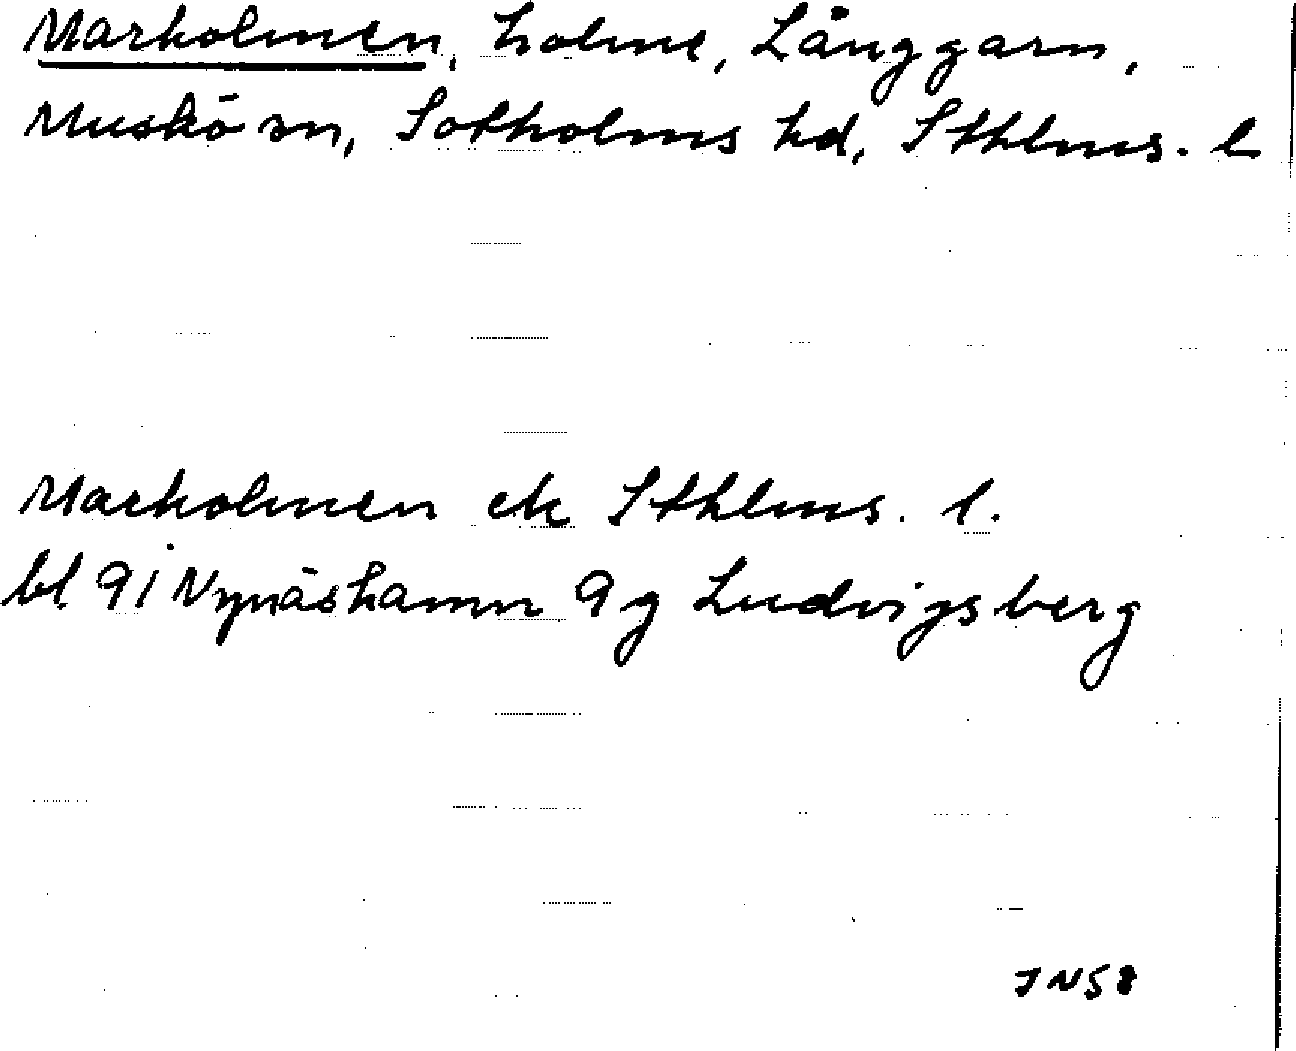 Marholmen, holme, Långgarn,
Muskö sn, Sotholms hd, Sthlms. l
Marholmen ek Sthlms. l.
bl. 9i Nynäshamn 9g Ludvigsberg
JN58